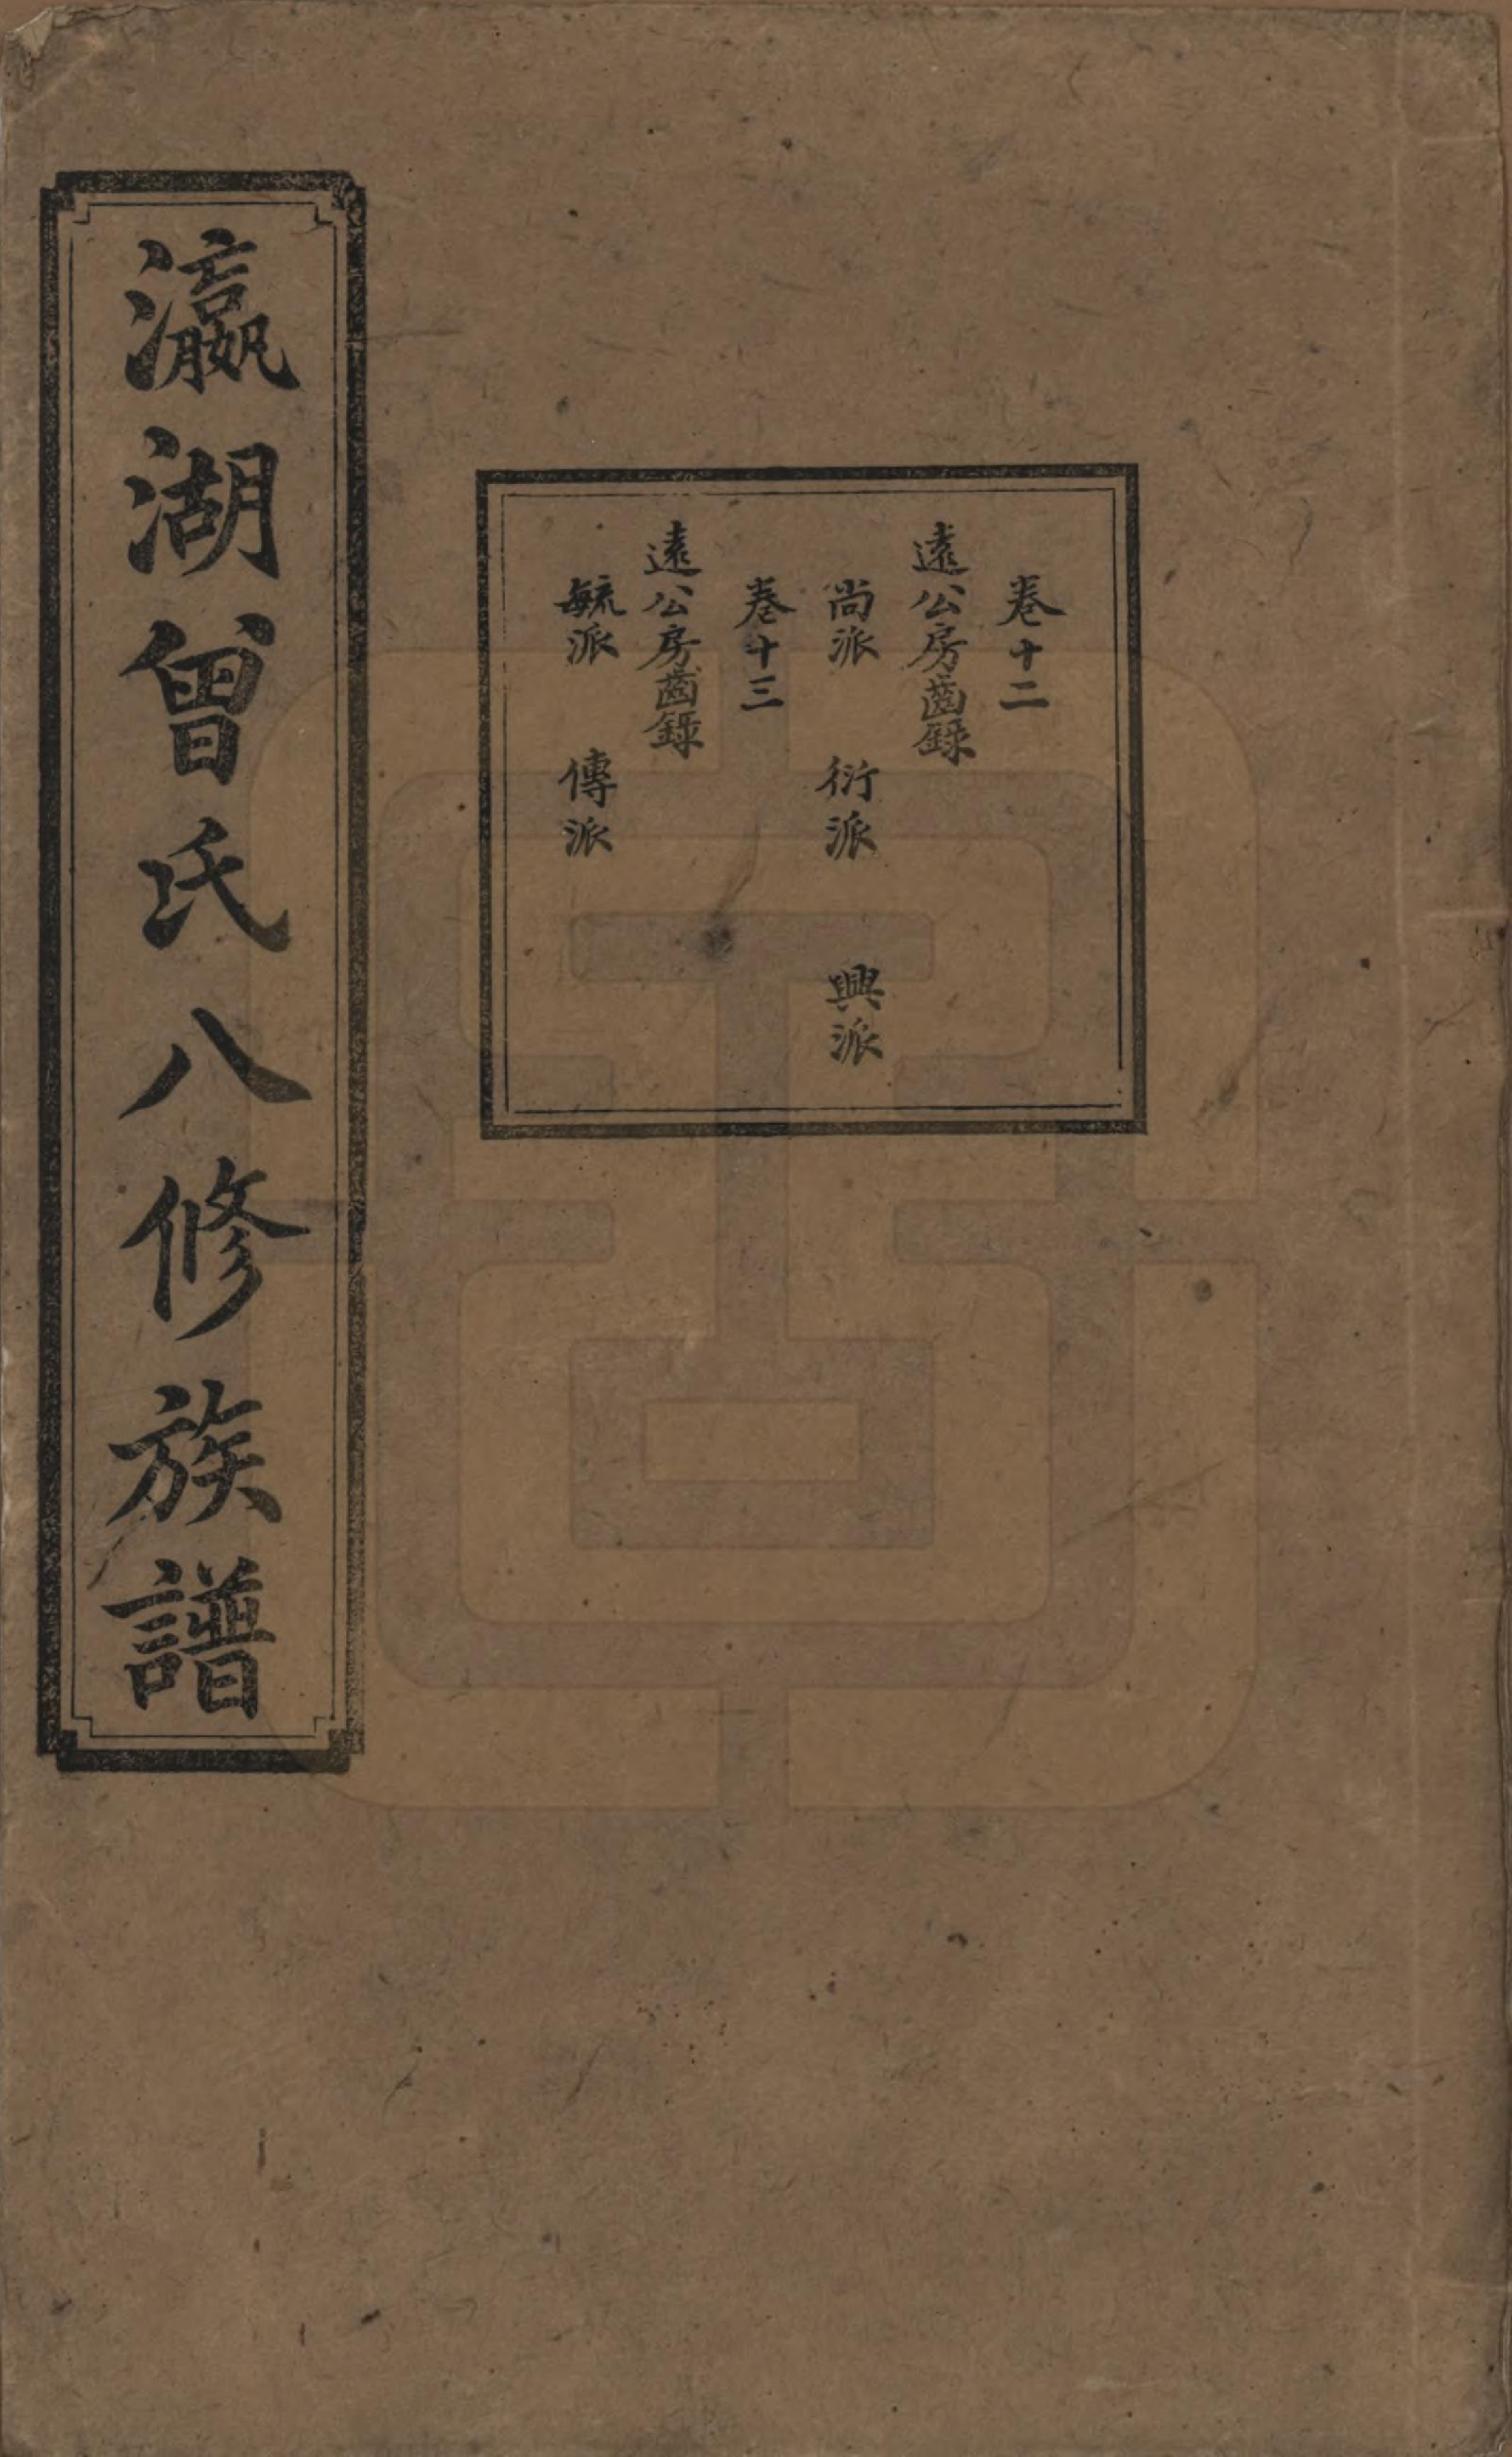 卷十二
遠公房齒錄
尚派　衍派　興派
卷十三
遠公房齒錄
毓派　傳派
瀛湖曾氏八修族譜